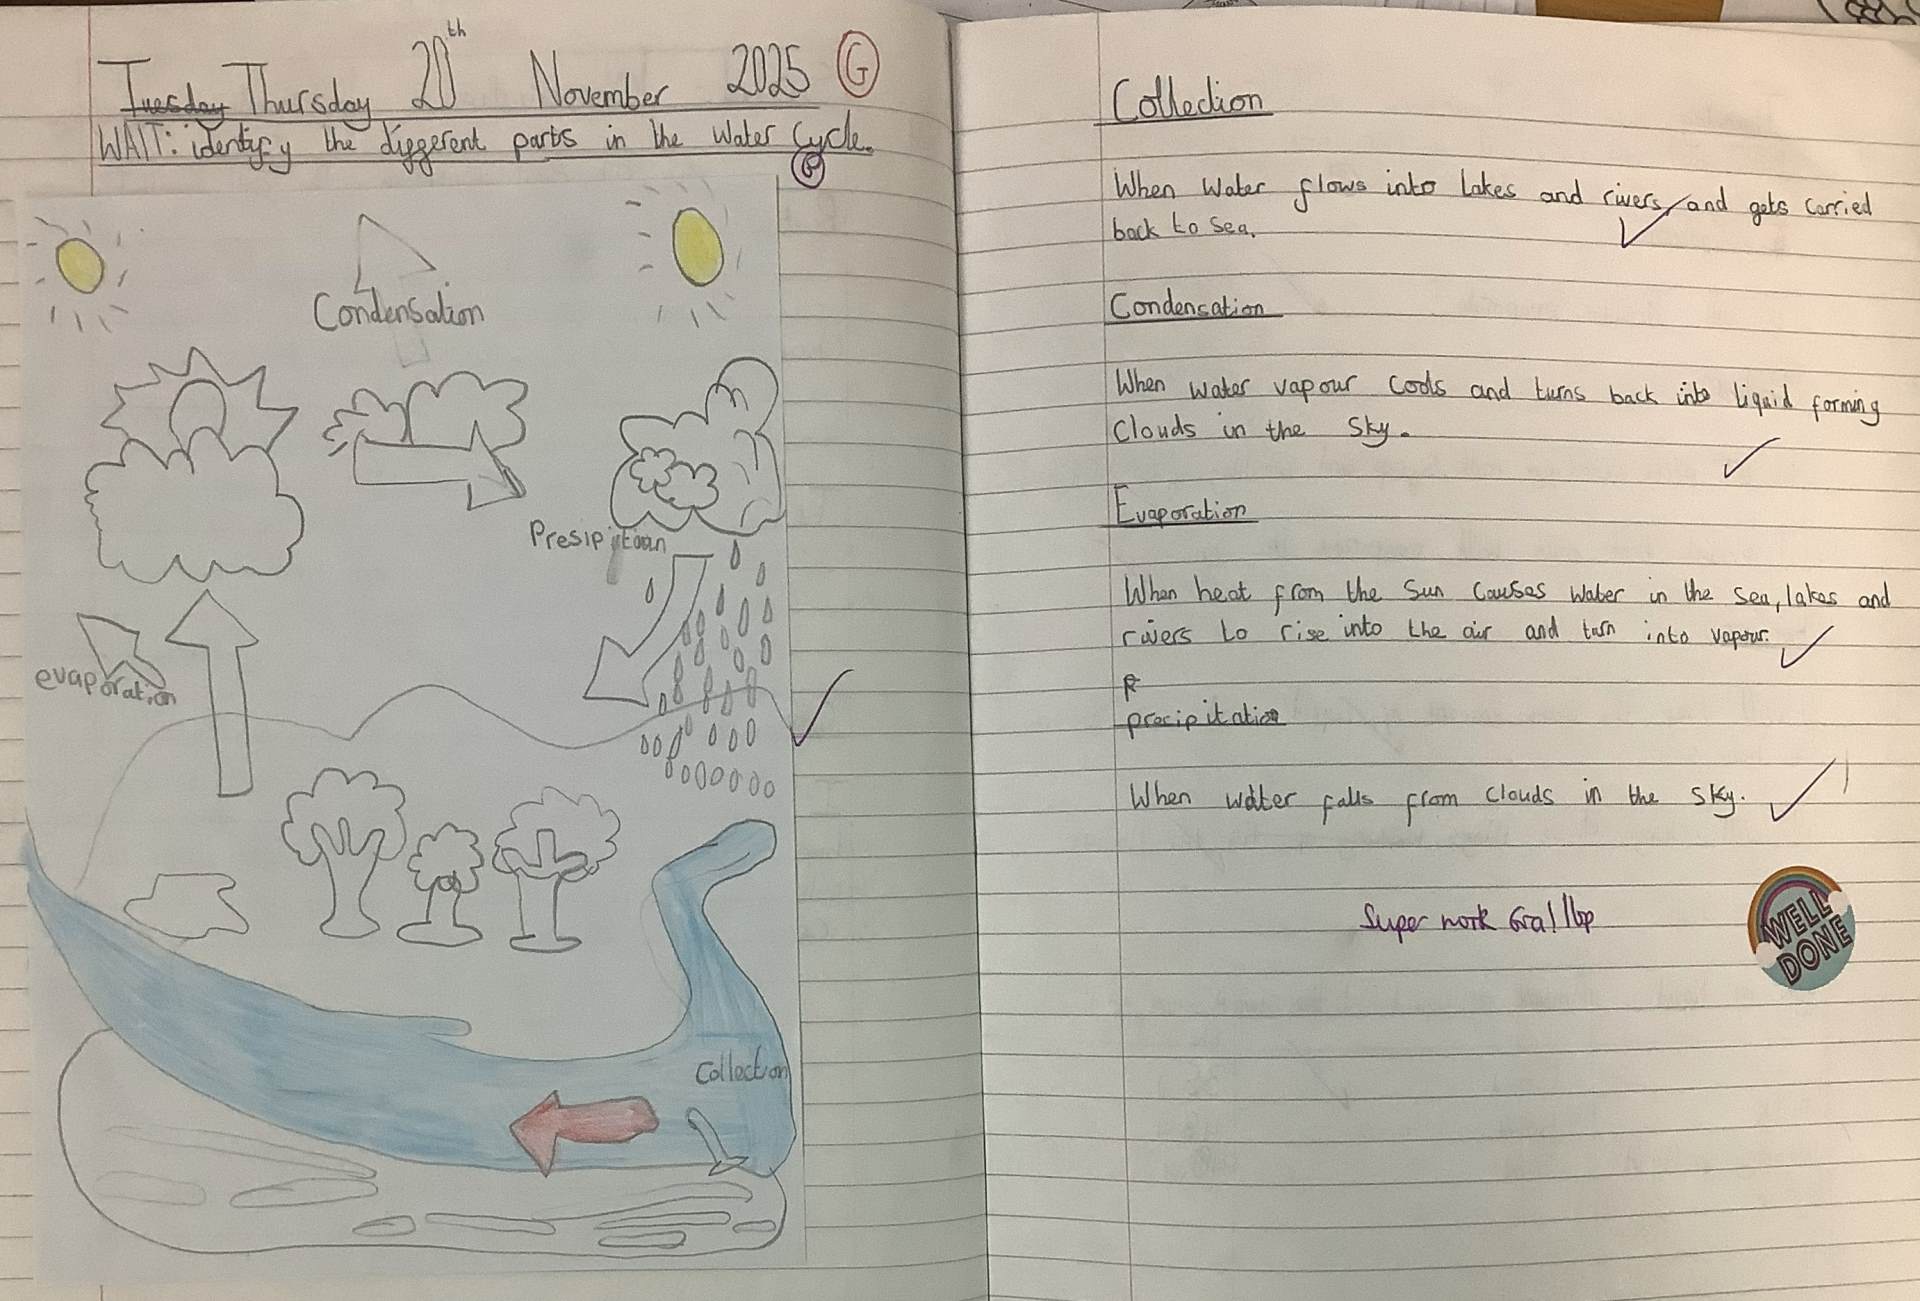 Tuesday Thursday 20th November 2025 G
WALT: identify the different parts in the Water Cycle.
G
Condensation
Presipitaian
evaporation
Collection
Collection
When Water flows into lakes and rivers, and gets carried
back to Sea.
Condensation
When water vapour Cools and turns back into liquid forming
Clouds in the Sky.
Evaporation
When heat from the Sun Causes Water in the Sea, lakes and
rivers to rise into the air and turn into vapour.
P
precipitation
When water falls from Clouds in the Sky.
Super work
WELL
DONE